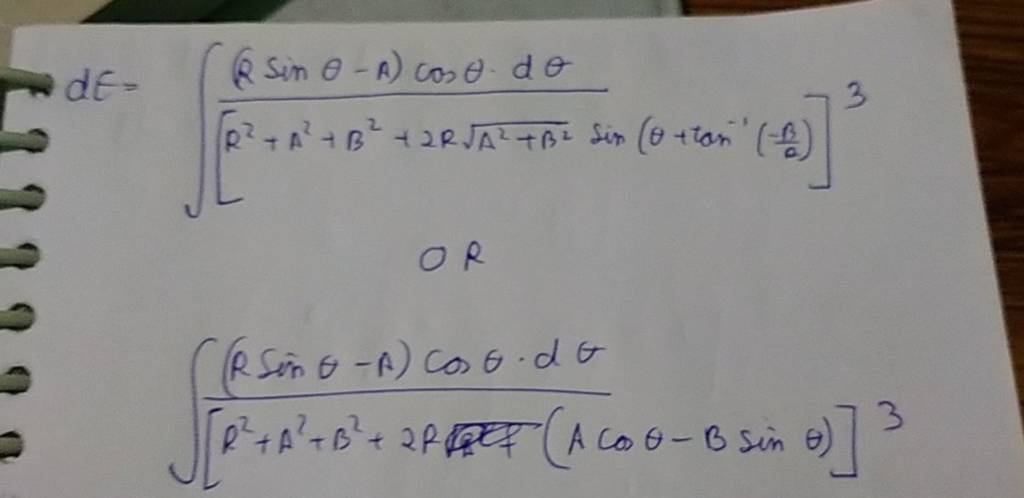 dE = ∫ (R Sin θ - A) cos θ · dθ / [R² + A² + B² + 2R√(A² + B²) Sin (θ + tan⁻¹ (-B/a)]³
OR
∫ (R Sin θ - A) Cos θ · dθ / [R² + A² + B² + 2R (A Cos θ - B Sin θ)]³